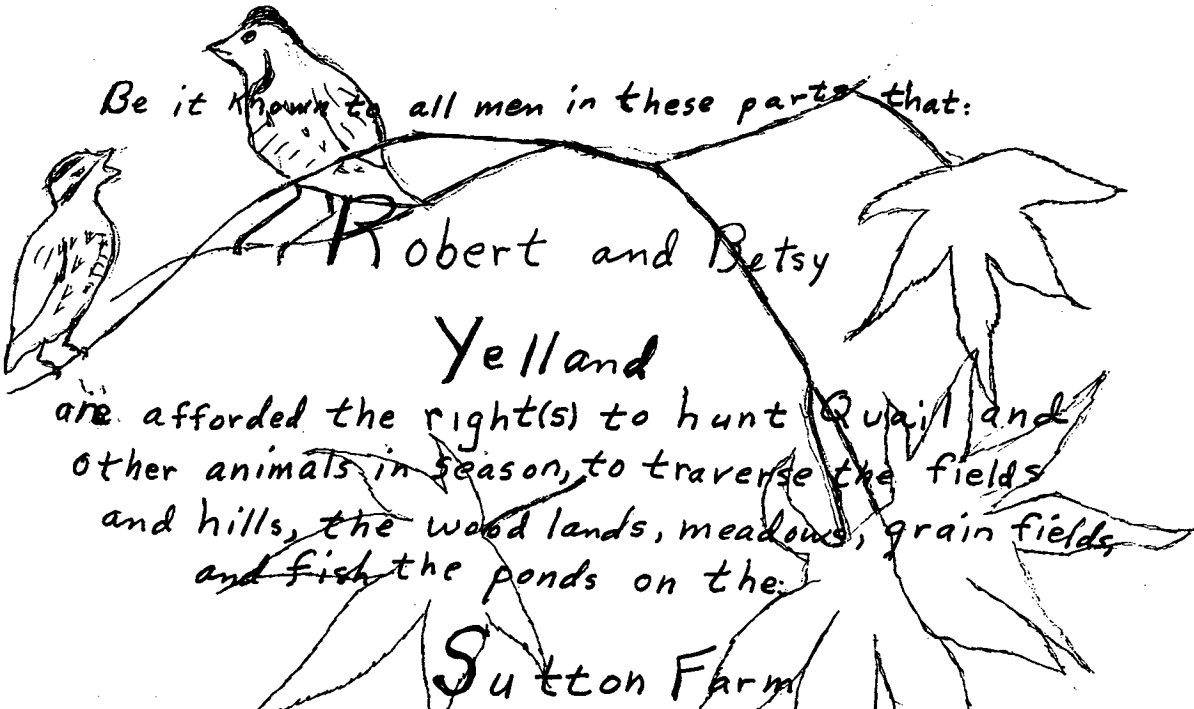 Be it known to all men in these parts that:
Robert and Betsy
Yelland
are afforded the right(s) to hunt Quail and
other animals in season, to traverse the fields
and hills, the wood lands, meadows, grain fields,
and fish the ponds on the:
Sutton Farm